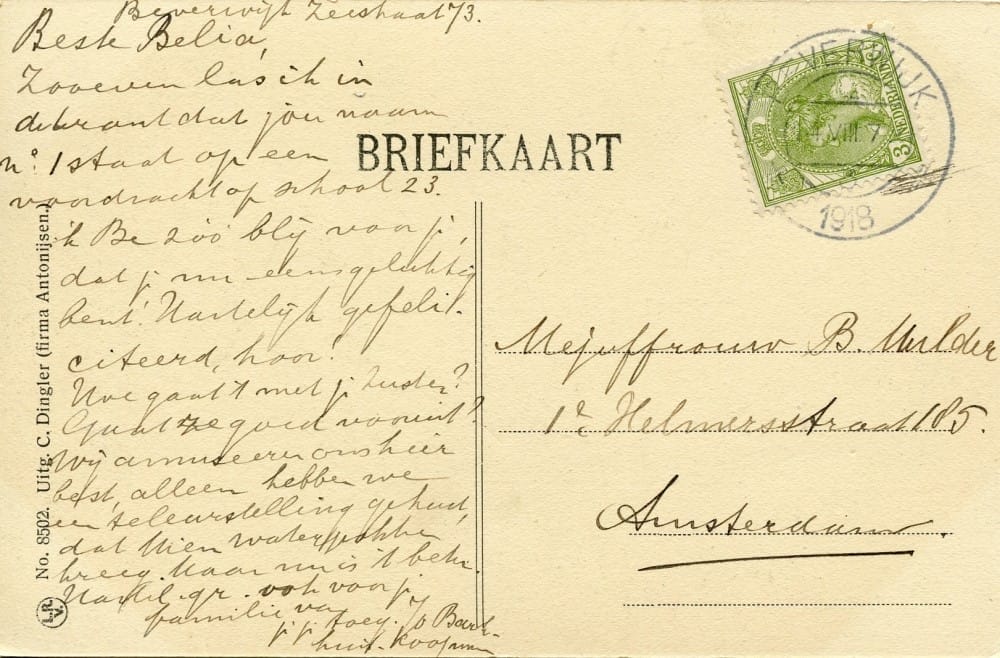 Beverwijk Zeestraat 73.
Beste Belia,
Zooeven las ik in
de krant dat jou naam
no. 1 staat op een
voordracht op school 23.
ik Be zoo blij voor je,
dat je nu eens gelukkig
bent. Hartelijk gefeli-
citeerd, hoor!
Hoe gaat 't met je zuster?
Gaat ze goed vooruit?
Wij amuseeren ons hier
best, alleen hebben we
een teleurstelling gehad,
dat Mien waterpokken
kreeg. Maar nu is 't beter.
Hartel. gr. ook voor je
familie van
j. j. toeg.
BRIEFKAART
BEVERWIJK
4 VIII 7
1918
NEDERLAND
3
Mejuffrouw B. Mulder
1e Helmersstraat 185.
Amsterdam.
No. 8502. Uitg. C. Dingler (firma Antonijsen.)